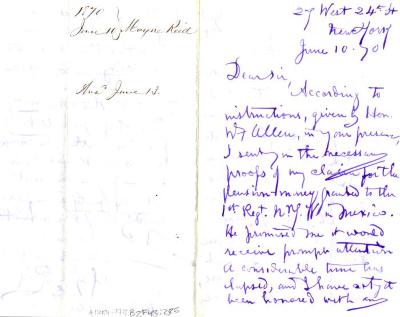 1870
June 10 Mayne Reid
Ansd June 13.
27 West 24th St
New York
June 10. 70
Dear Sir,
According to
instructions, given by Hon.
Wm Allen, in your presence,
I sent in the necessary
proofs of my claim for the
pension-money granted to the
1st Regt. N.Y. in Mexico.
He promised me it would
receive prompt attention
A considerable time has
elapsed, and I have not yet
been honored with any